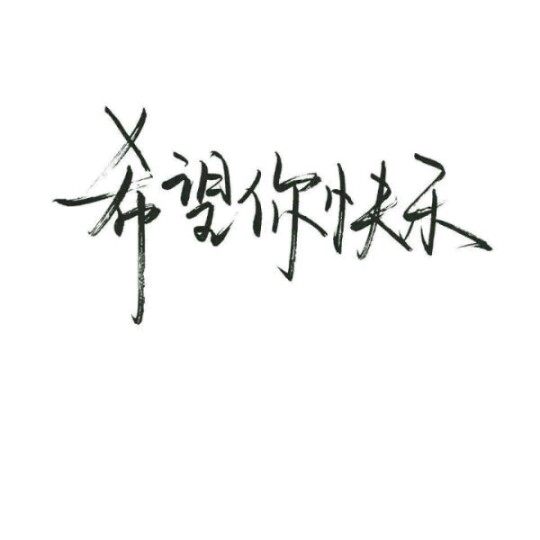 希望你快乐